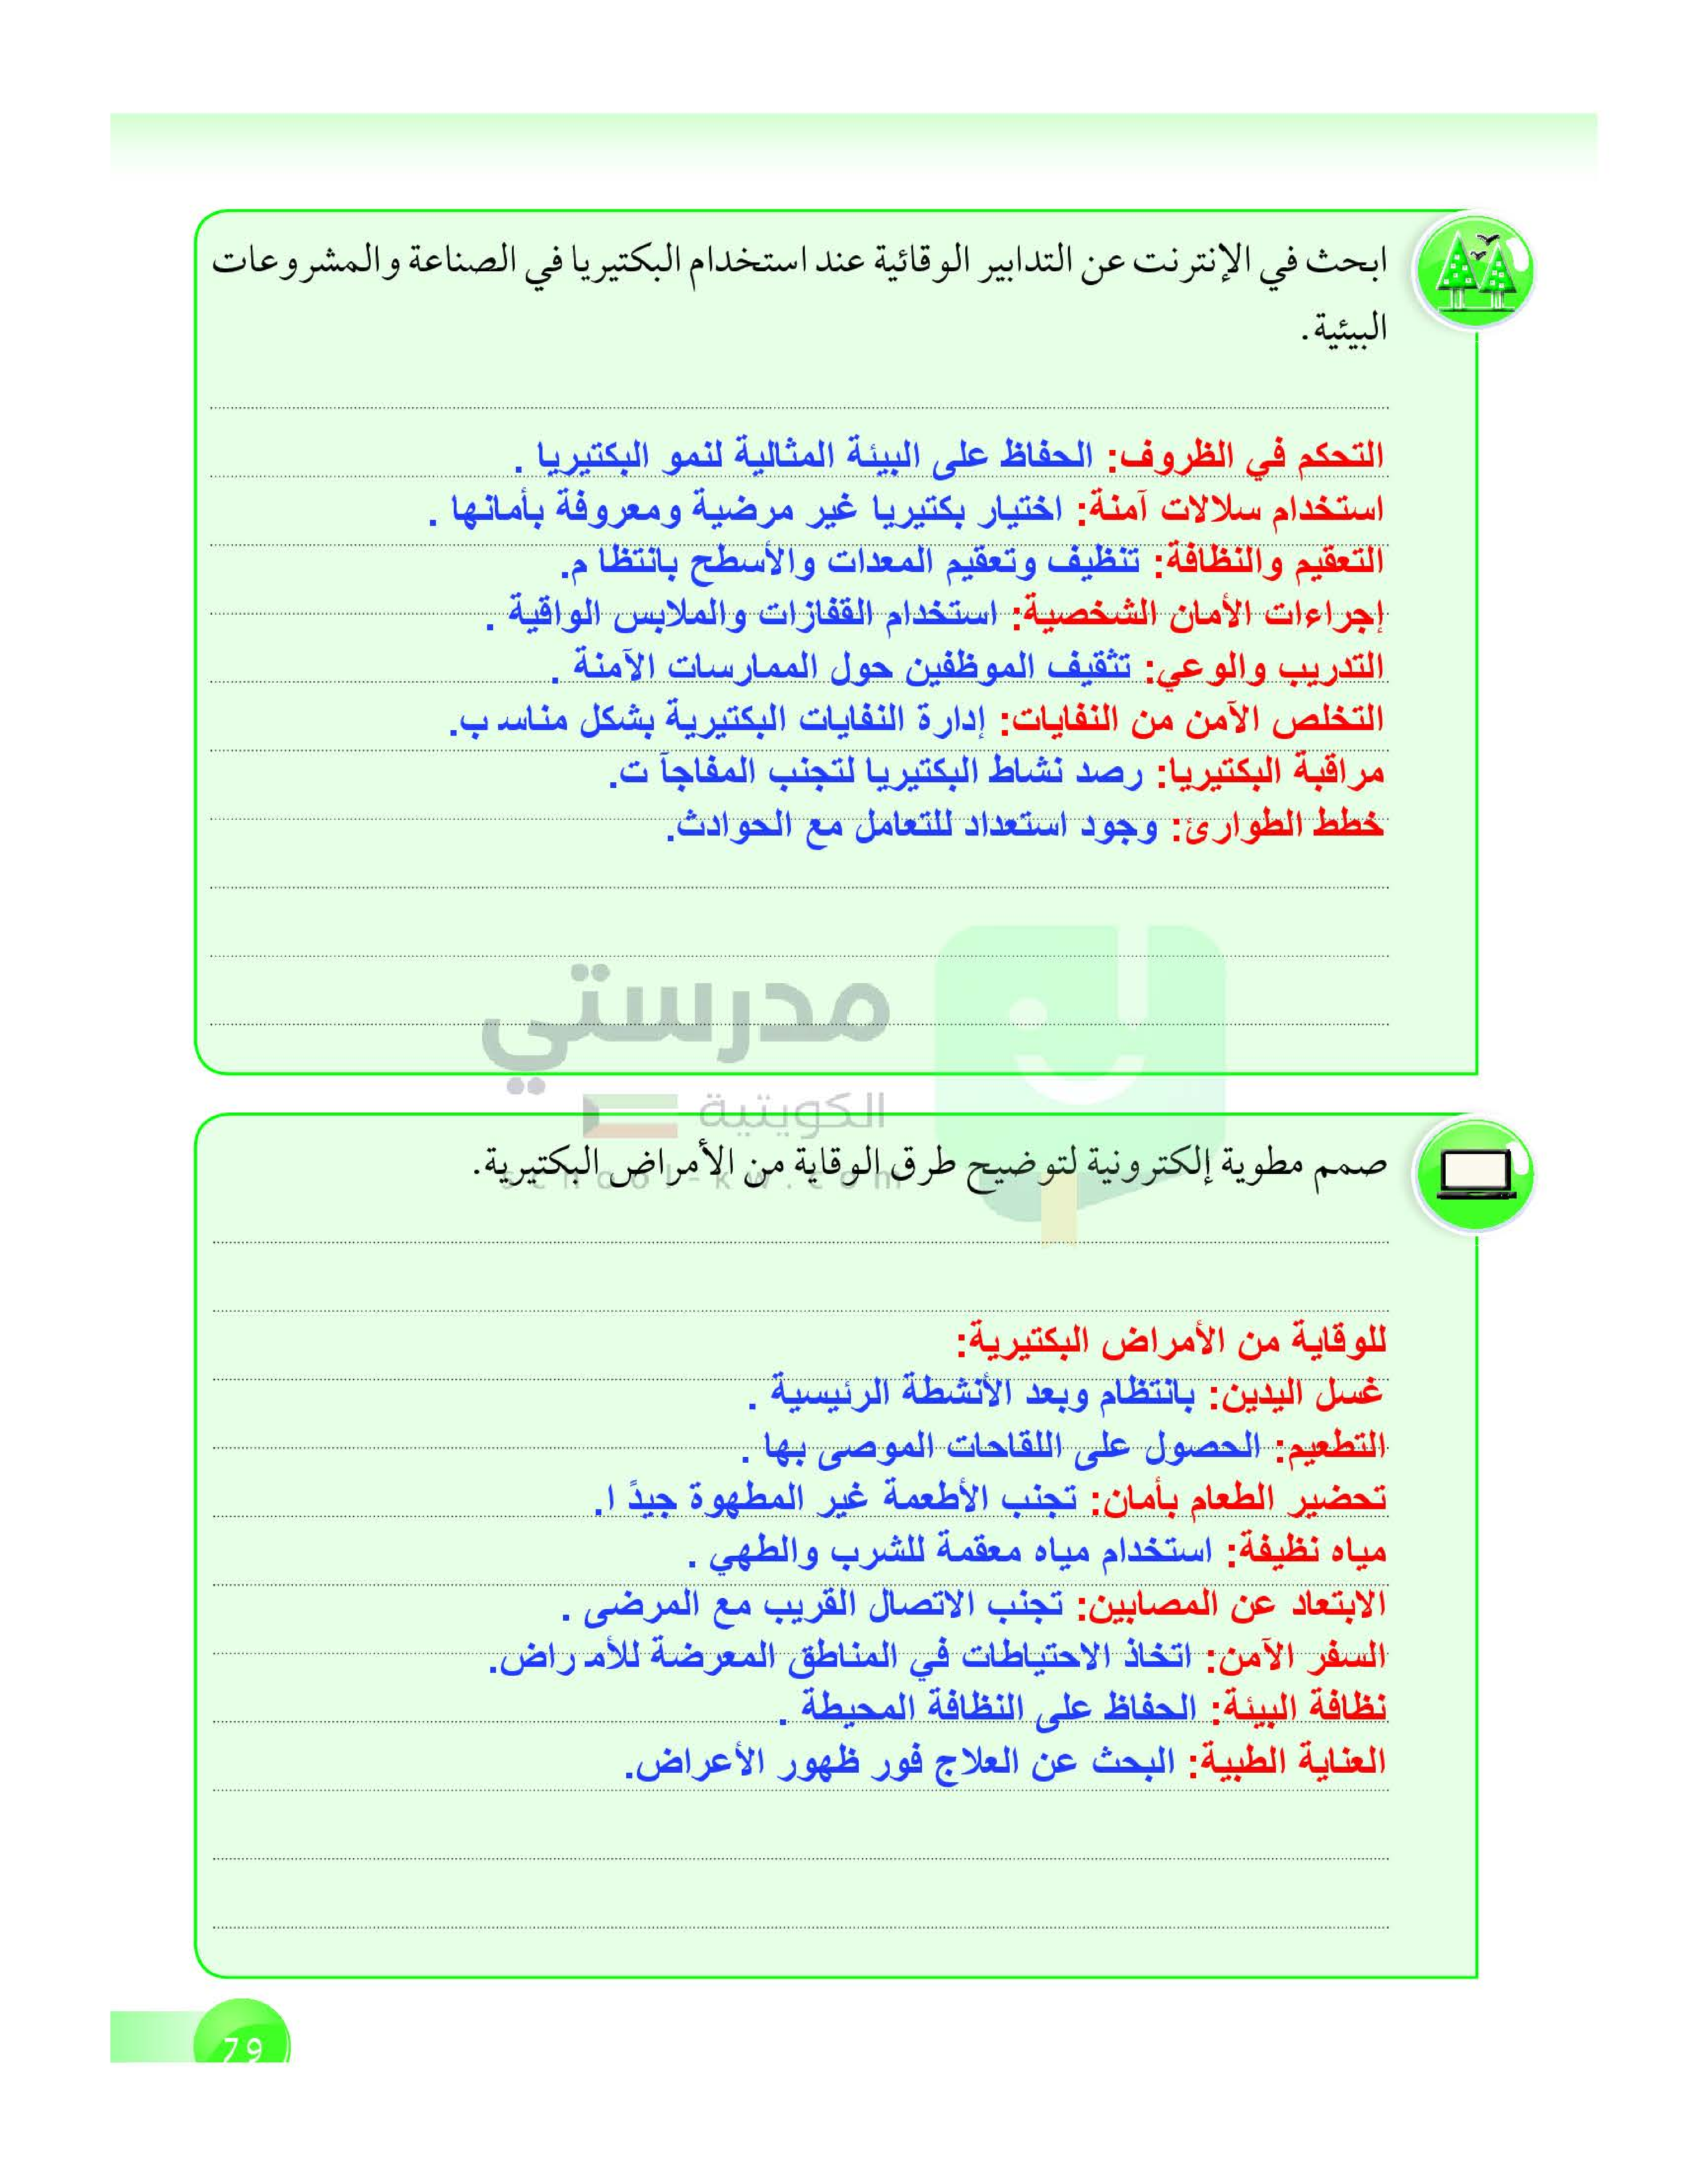 ابحث في الإنترنت عن التدابير الوقائية عند استخدام البكتيريا في الصناعة والمشروعات
البيئية.
التحكم في الظروف: الحفاظ على البيئة المثالية لنمو البكتيريا .
استخدام سلالات آمنة: اختيار بكتيريا غير مرضية ومعروفة بأمانها .
التعقيم والنظافة: تنظيف وتعقيم المعدات والأسطح بانتظا م.
إجراءات الأمان الشخصية: استخدام القفازات والملابس الواقية .
التدريب والوعي: تثقيف الموظفين حول الممارسات الآمنة .
التخلص الآمن من النفايات: إدارة النفايات البكتيرية بشكل مناسـ ب.
مراقبة البكتيريا: رصد نشاط البكتيريا لتجنب المفاجآ ت.
خطط الطوارئ: وجود استعداد للتعامل مع الحوادث.
مدرستي
الكويتية
school-kw.com
صمم مطوية إلكترونية لتوضيح طرق الوقاية من الأمراض البكتيرية.
للوقاية من الأمراض البكتيرية:
غسل اليدين: بانتظام وبعد الأنشطة الرئيسية .
التطعيم: الحصول على اللقاحات الموصى بها .
تحضير الطعام بأمان: تجنب الأطعمة غير المطهوة جيدً ا.
مياه نظيفة: استخدام مياه معقمة للشرب والطهي .
الابتعاد عن المصابين: تجنب الاتصال القريب مع المرضى .
السفر الآمن: اتخاذ الاحتياطات في المناطق المعرضة للأمـ راض.
نظافة البيئة: الحفاظ على النظافة المحيطة .
العناية الطبية: البحث عن العلاج فور ظهور الأعراض.
79